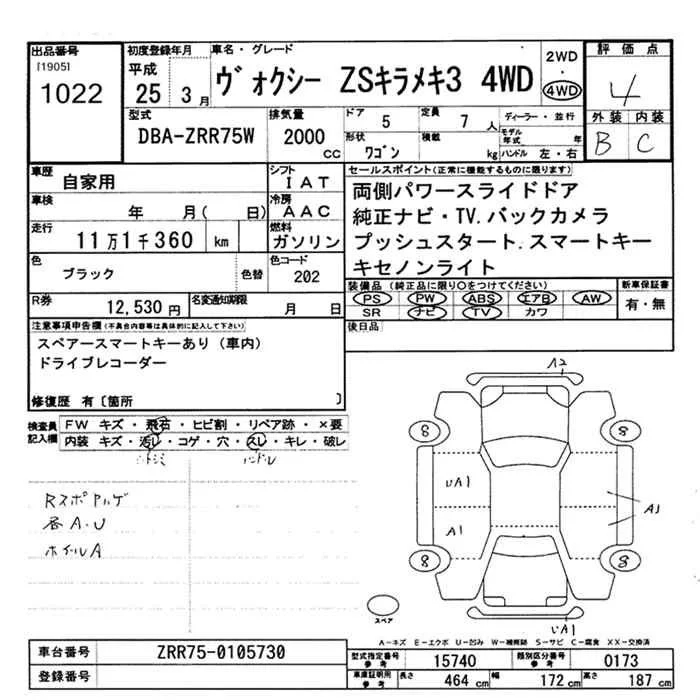 出品番号
[1905]
1022
初度登録年月
平成
25 3月
車名・グレード
ヴォクシー ZSキラメキ3 4WD
2WD
・
4WD
評価点
4
外装 内装
B C
型式
DBA-ZRR75W
排気量
2000
cc
ドア 5
定員 7人
形状 ワゴン
積載 kg
ディーラー・並行
モデル年式 年
ハンドル 左・右
車歴
自家用
シフト
IAT
車検
年 月( 日)
冷房
AAC
走行
11万1千360 km
燃料
ガソリン
色
ブラック
色替
色コード
202
R券
12,530円
名変通知期限
月 日
セールスポイント(正常に機能するものに限ります)
両側パワースライドドア
純正ナビ・TV.バックカメラ
プッシュスタート.スマートキー
キセノンライト
装備品(純正品に限り○をつけてください)
PS PW ABS エアB AW
SR ナビ TV カワ
新車保証書
有・無
後日品
注意事項申告欄(不具合内容等は具体的に記入して下さい)
スペアースマートキーあり(車内)
ドライブレコーダー
修復歴 有〔箇所 〕
検査員記入欄
FW キズ・飛石・ヒビ割・リペア跡・×要
内装 キズ・汚レ・コゲ・穴・スレ・キレ・破レ
シミ ハンドル
Rスポ
各A.U
ホイルA
A2
8 8
UA1
A1
A1
8 8
UA1
スペア
A-キズ E-エクボ U-凹み W-補修跡 S-サビ C-腐食 XX-交換済
車台番号
ZRR75-0105730
登録番号
型式指定番号
参考
15740
類別区分番号
参考
0173
車庫証明用
参考
長さ 464 cm 幅 172 cm 高さ 187 cm